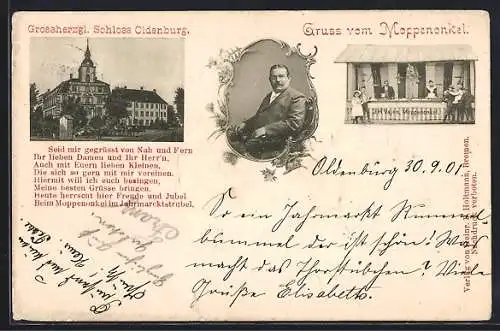 Grossherzgl. Schloss Oldenburg.
Gruss vom Moppenonkel.
Seid mir gegrüsst von Nah und Fern
Ihr lieben Damen und Ihr Herr'n,
Auch mit Euern lieben Kleinen,
Die sich so gern mit mir vereinen.
Hiermit will ich euch besingen,
Meine besten Grüsse bringen,
Heute herrscht hier Freude und Jubel
Beim Moppenonkel im Jahrmarktstrubel.
Oldenburg 30.9.01
So ein Jahrmarkt Rummel
bummel der ist schön! Was
macht das Thorstübchen? Viele
Grüße Elisabeth.
Verlag von Heinr. A. Hohmann, Bremen.
Nachdruck verboten.